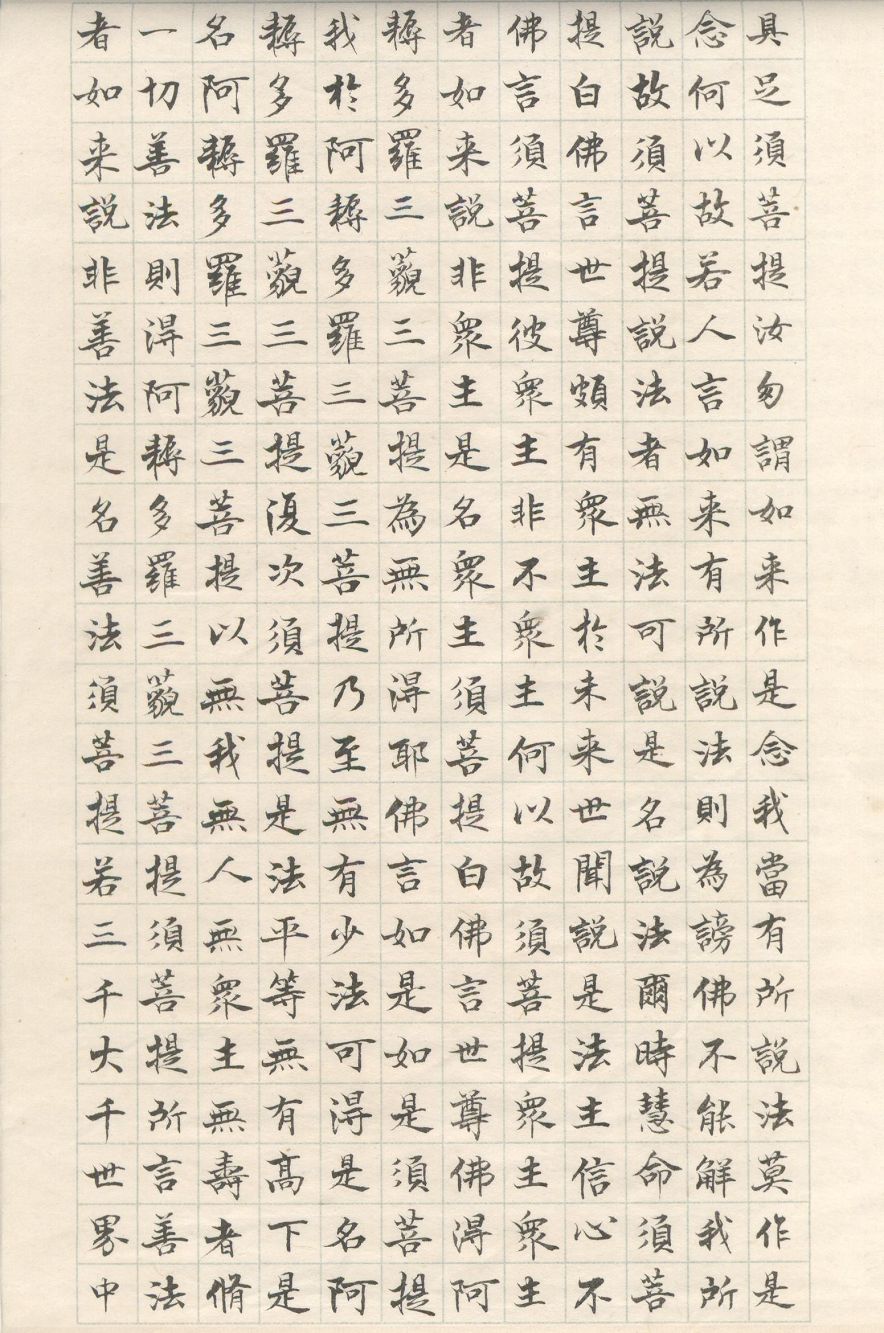 具足須菩提汝勿謂如来作是念我當有所說法莫作是
念何以故若人言如来有所說法則為謗佛不能解我所
說故須菩提說法者無法可說是名說法爾時慧命須菩
提白佛言世尊頗有眾生於未来世聞說是法生信心不
佛言須菩提彼眾生非不眾生何以故須菩提眾生眾生
者如来說非眾生是名眾生須菩提白佛言世尊佛得阿
耨多羅三藐三菩提為無所得耶佛言如是如是須菩提
我於阿耨多羅三藐三菩提乃至無有少法可得是名阿
耨多羅三藐三菩提復次須菩提是法平等無有高下是
名阿耨多羅三藐三菩提以無我無人無眾生無壽者脩
一切善法則得阿耨多羅三藐三菩提須菩提所言善法
者如来說非善法是名善法須菩提若三千大千世界中